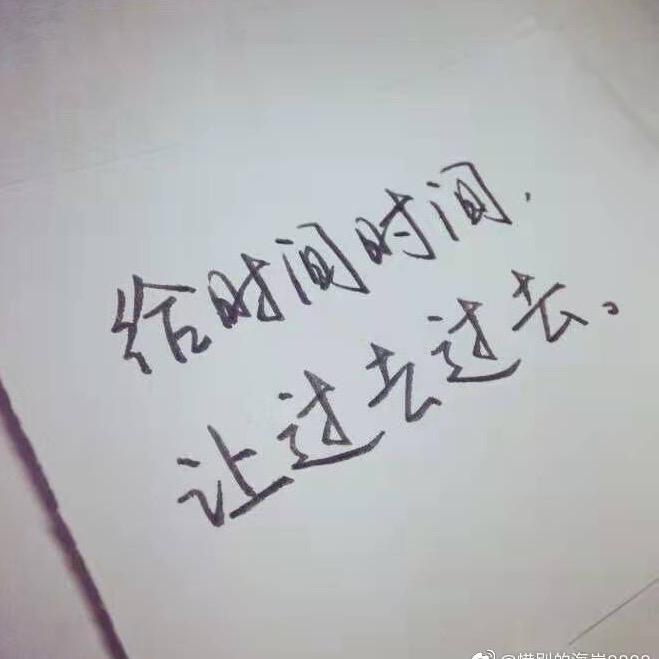 给时间时间,
让过去过去。